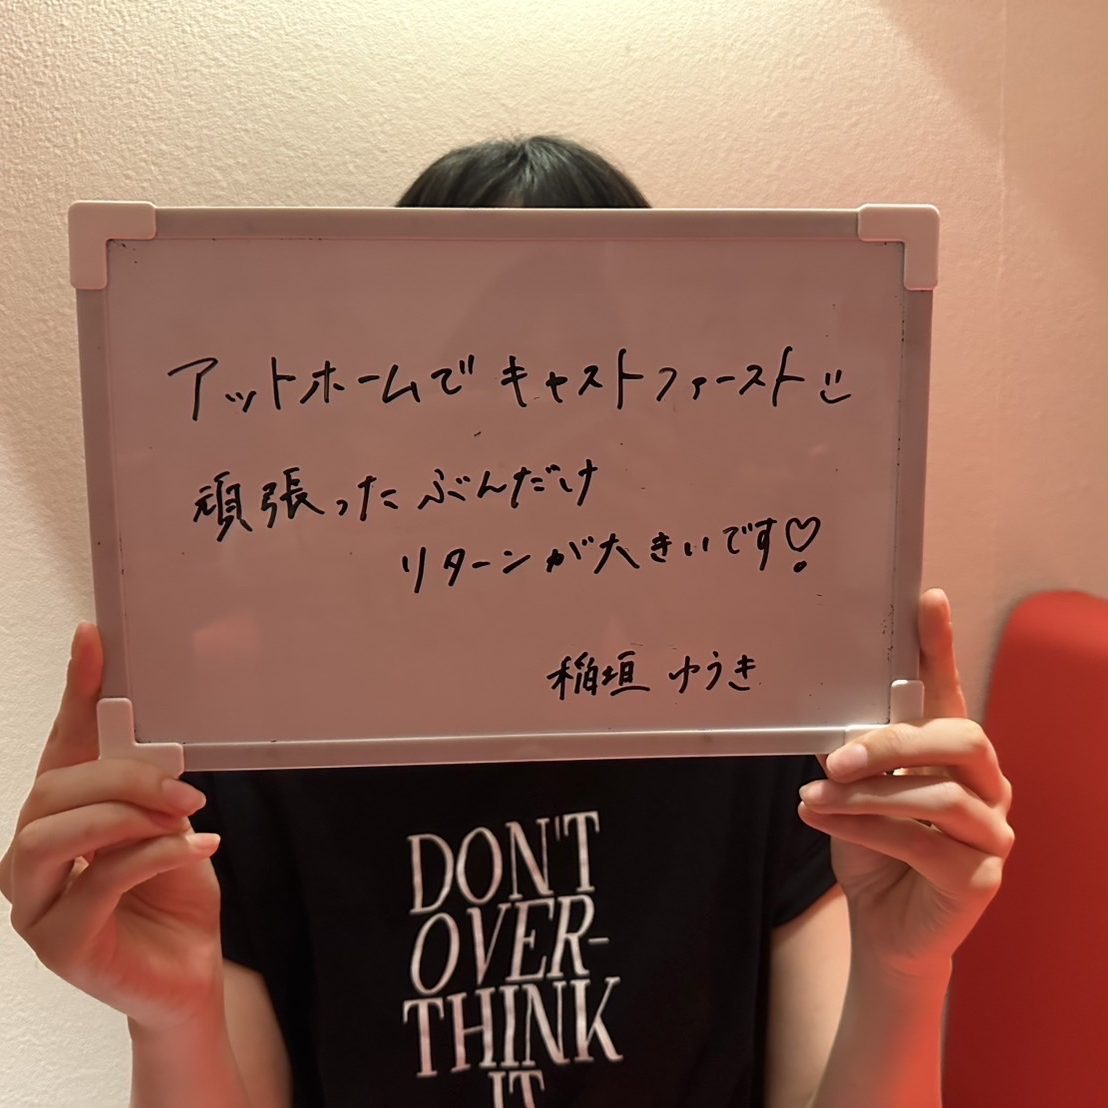 アットホームで キャストファースト
頑張ったぶんだけ
リターンが大きいです♡
稲垣 ゆうき
DON'T
OVER-
THINK
IT